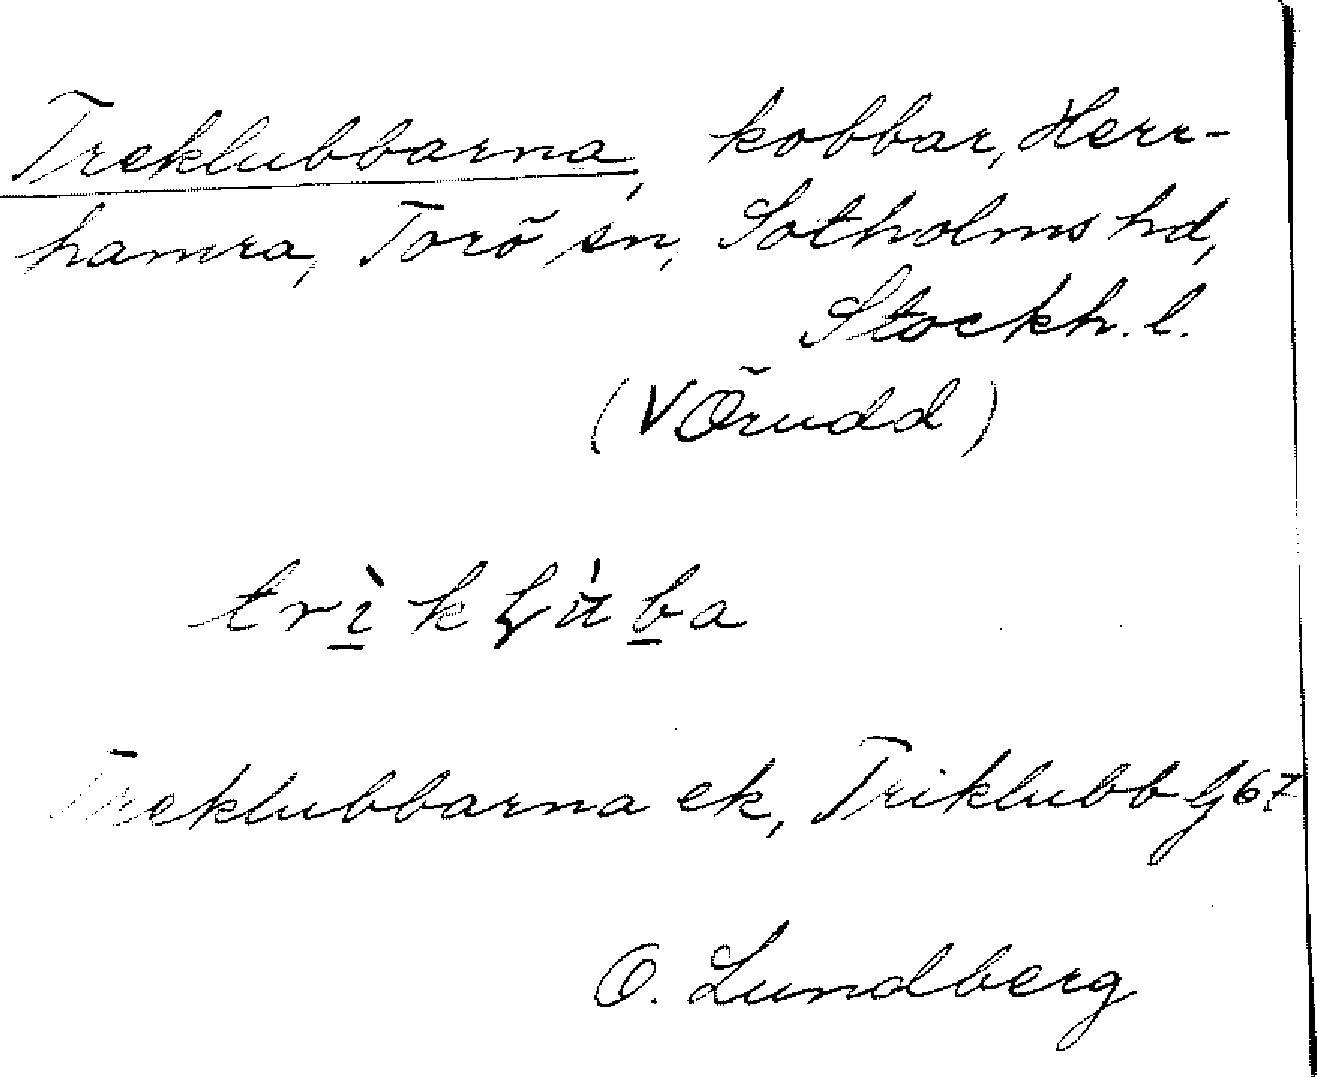 Treklubbarna, kobbar, Herr-
hamra, Torö sn, Sotholms hd,
Stockh. l.
(V Örudd)
Treklubbarna ek, Triklubb G 67
O. Lundberg